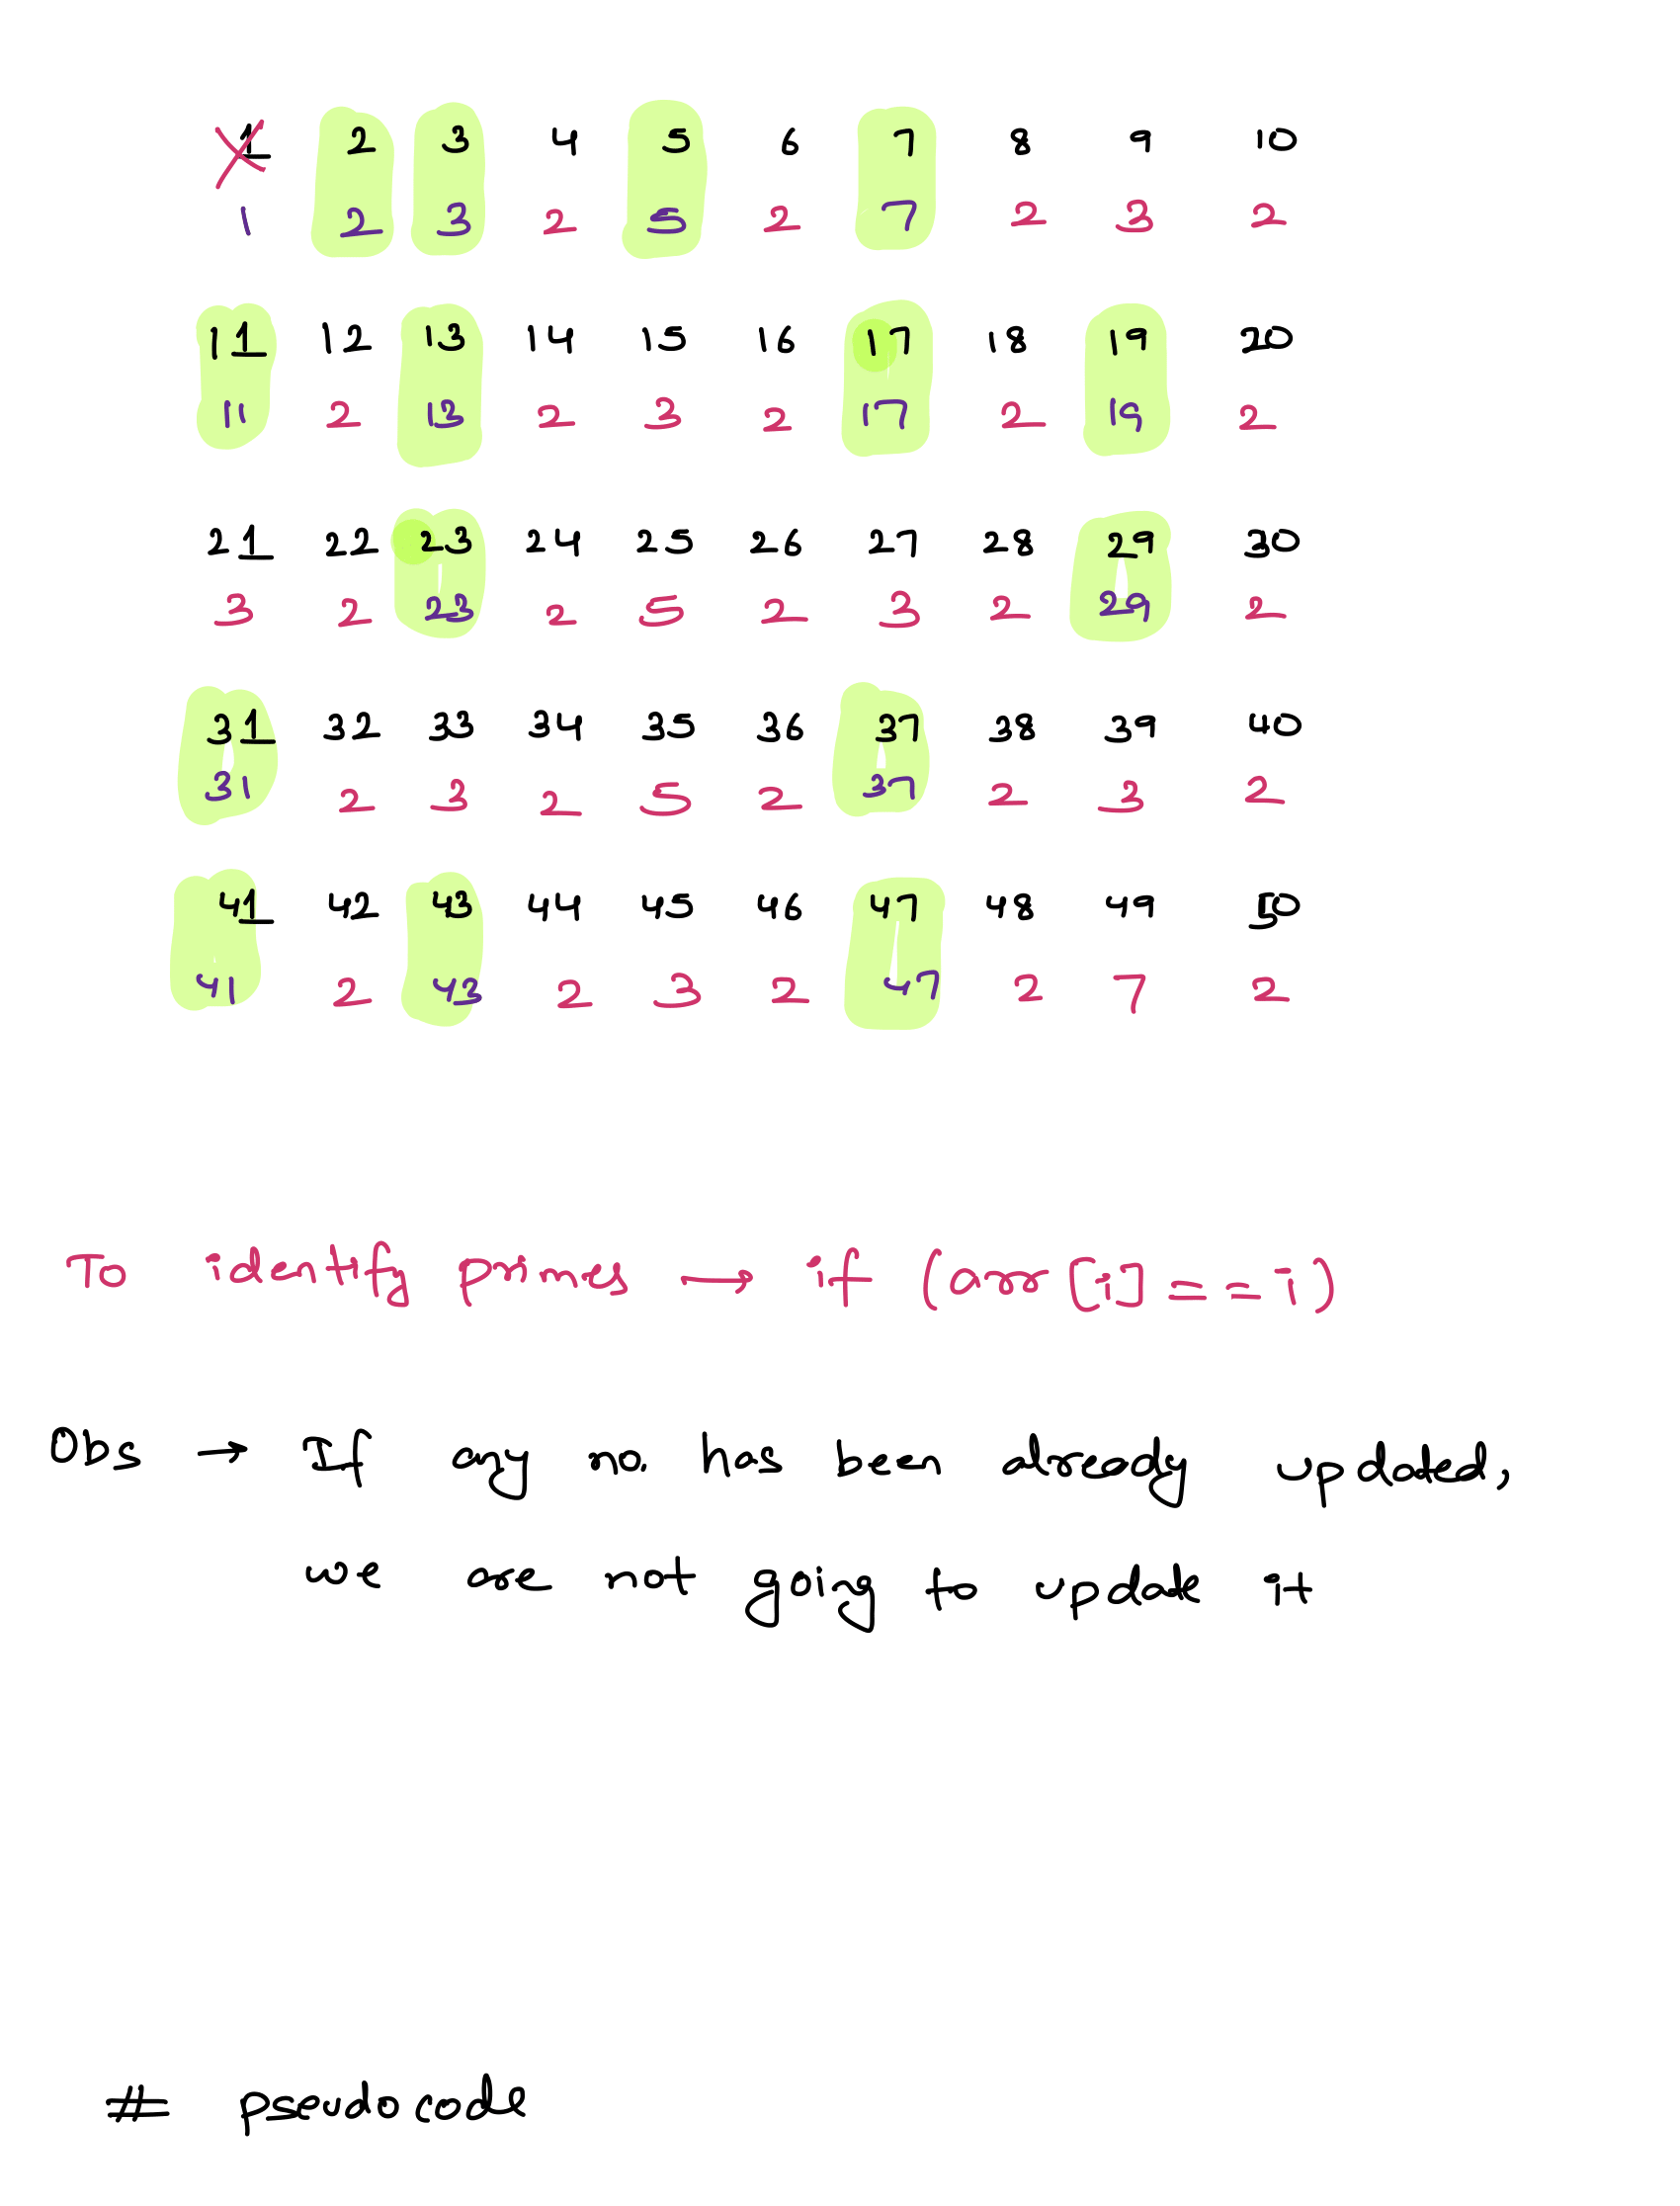 1 2 3 4 5 6 7 8 9 10
1 2 3 2 5 2 7 2 3 2
11 12 13 14 15 16 17 18 19 20
11 2 13 2 3 2 17 2 19 2
21 22 23 24 25 26 27 28 29 30
3 2 23 2 5 2 3 2 29 2
31 32 33 34 35 36 37 38 39 40
31 2 3 2 5 2 37 2 3 2
41 42 43 44 45 46 47 48 49 50
41 2 43 2 3 2 47 2 7 2
To identify primes → if (arr[i] == i)
Obs → If any no. has been already updated,
we are not going to update it
# pseudo code